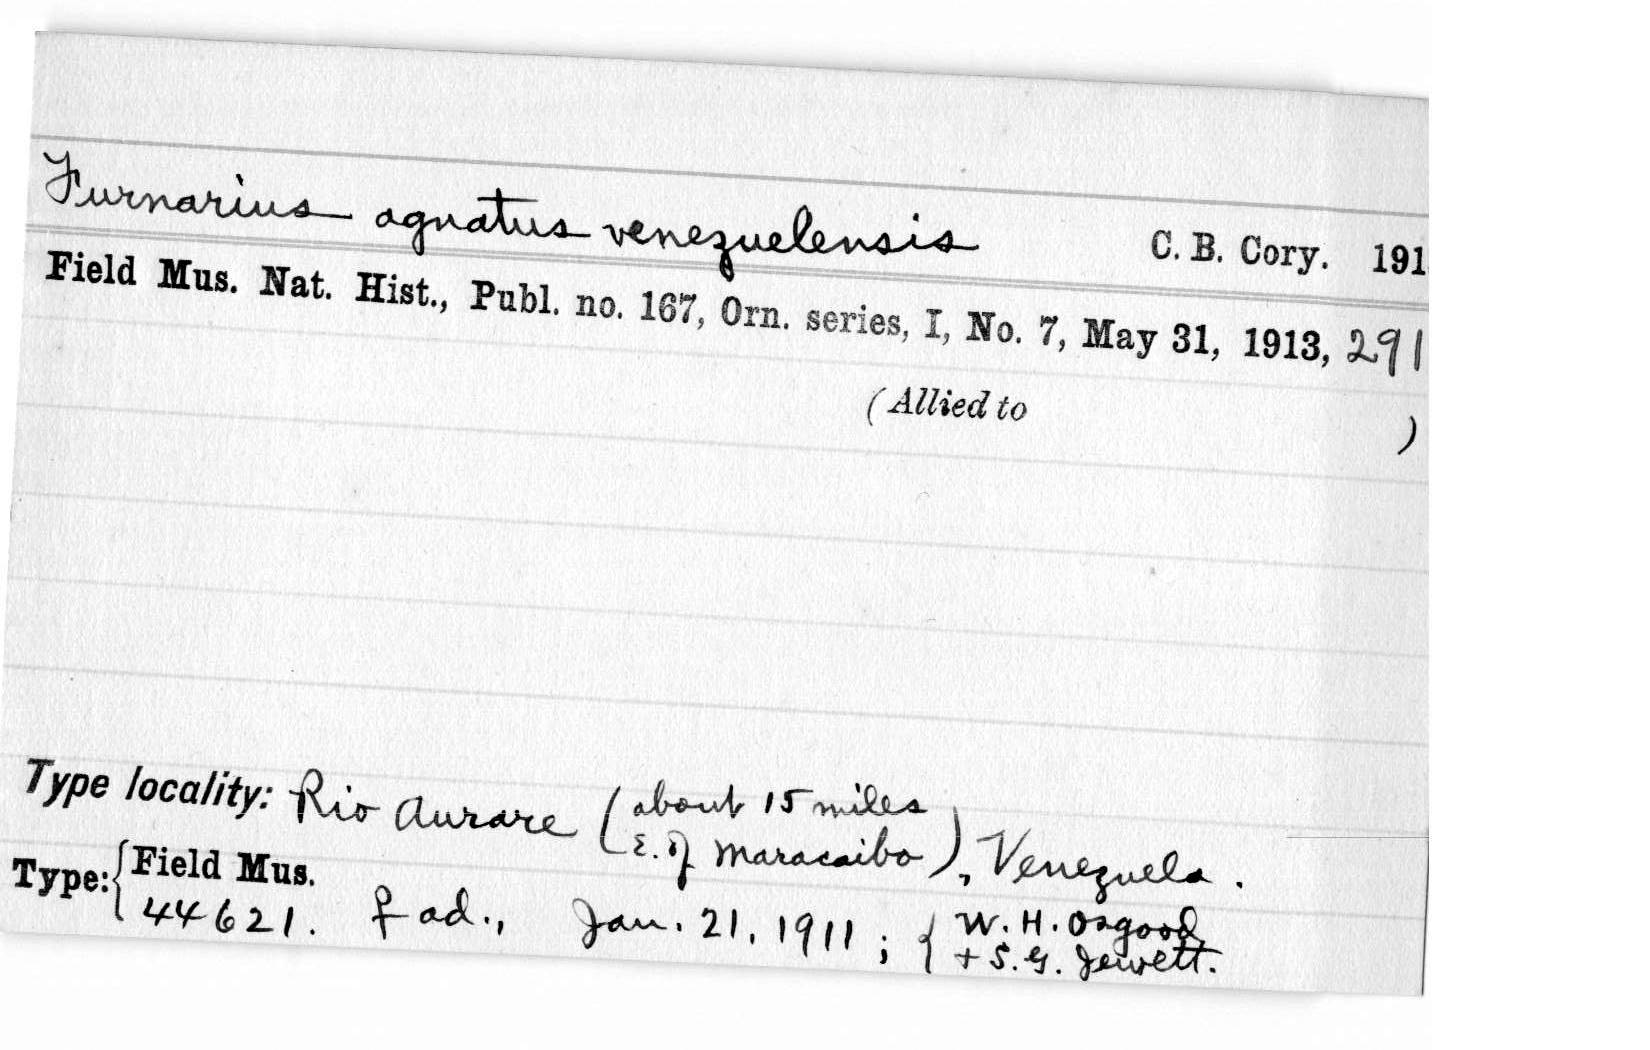 Furnarius agnatus venezuelensis C. B. Cory. 191
Field Mus. Nat. Hist., Publ. no. 167, Orn. series, I, No. 7, May 31, 1913, 291
(Allied to )
Type locality: Rio Aurare (about 15 miles
E. of Maracaibo), Venezuela.
Type: { Field Mus.
44621. ♀ ad., Jan. 21, 1911; { W. H. Osgood
+ S. G. Jewett.